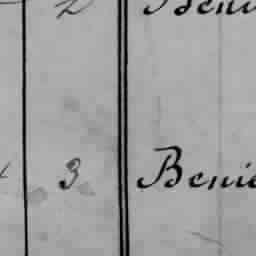 2 Beni
3 Benie